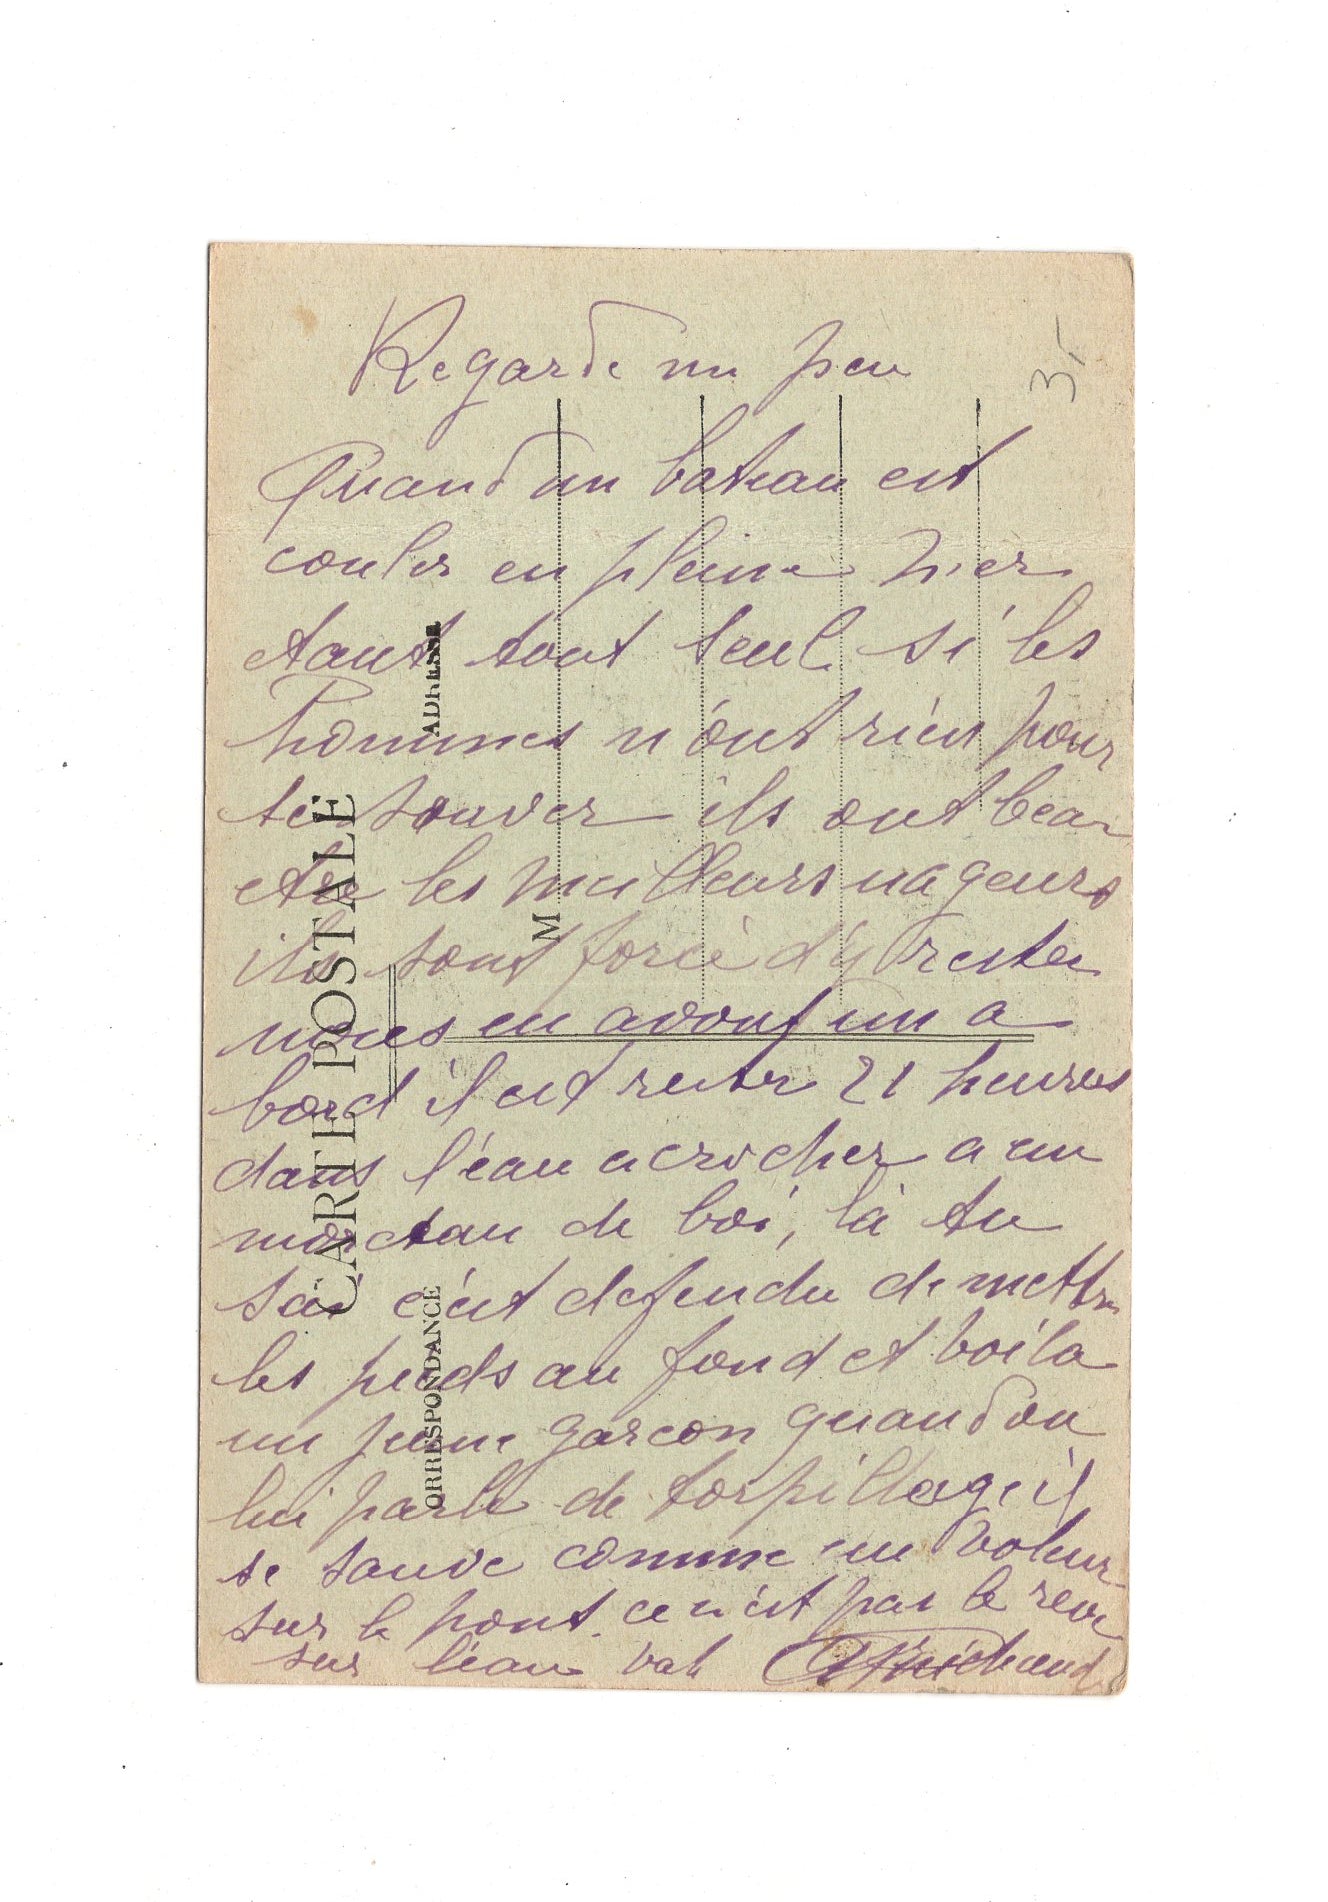 Regarde un peu
35
Quand un bateau est
couler en pleine Mer
etant tout seul si les
hommes n'ont rien pour
se sauver ils ont beau
etre les meilleurs nageurs
ils sont forcé d'y rester
nous en avont un a
bord il est rester 21 heures
dans l'eau acrocher a un
morceau de boi, là tu
sai c'est defendu de mettre
les pieds au fond et voila
un jeune garcon quand on
lui parle de torpillage il
se sauve comme un voleur
sur le pont. ce n'est pas le reve
sur l'eau vah
CARTE POSTALE
CORRESPONDANCE
ADRESSE
M